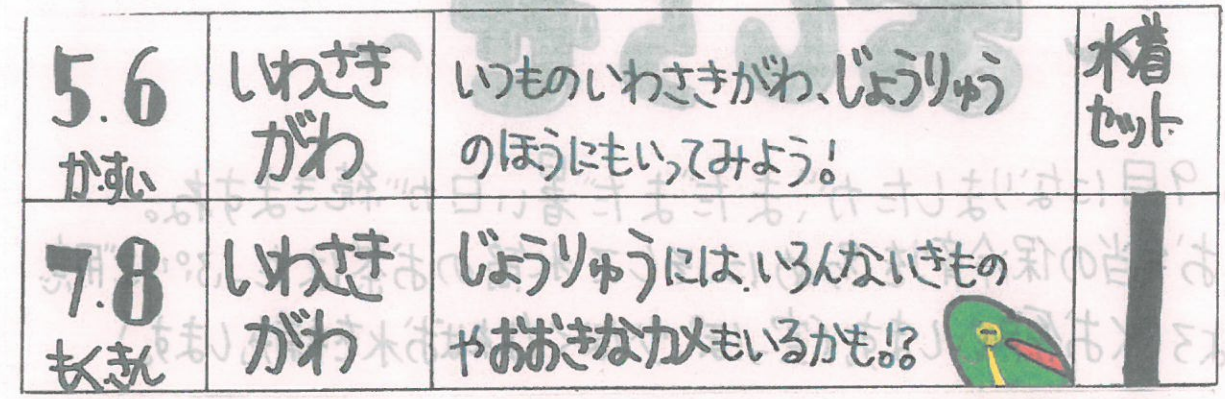 5.6
かすい
いわさき
がわ
いつものいわさきがわ、じょうりゅう
のほうにもいってみよう!
水着
セット
7.8
もくきん
いわさき
がわ
じょうりゅうには、いろんないきもの
やおおきなカメもいるかも!?